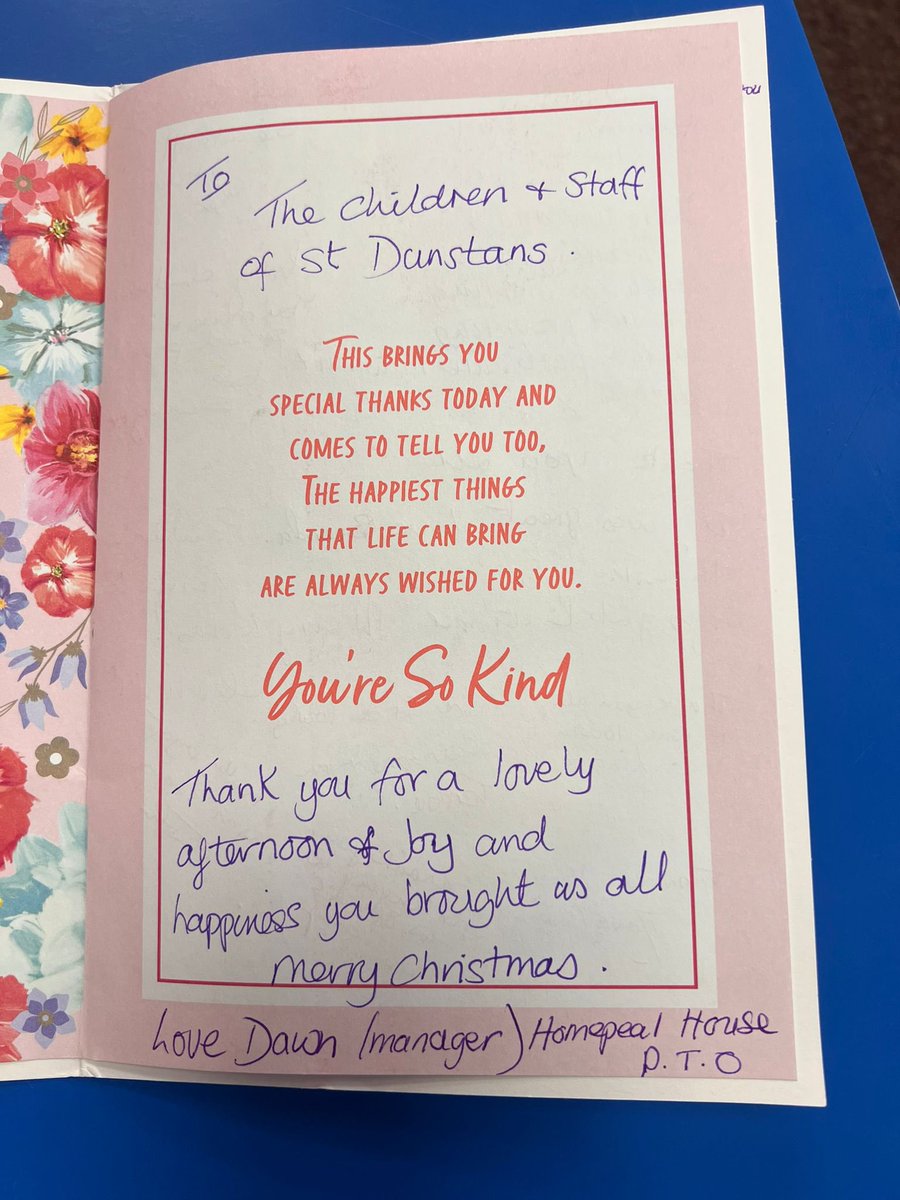 To
The Children & Staff
of St Dunstans.
THIS BRINGS YOU
SPECIAL THANKS TODAY AND
COMES TO TELL YOU TOO,
THE HAPPIEST THINGS
THAT LIFE CAN BRING
ARE ALWAYS WISHED FOR YOU.
You're So Kind
Thank you for a lovely
afternoon of Joy and
happiness you brought us all
Merry Christmas.
Love Dawn (manager) Homepeal House
P.T.O